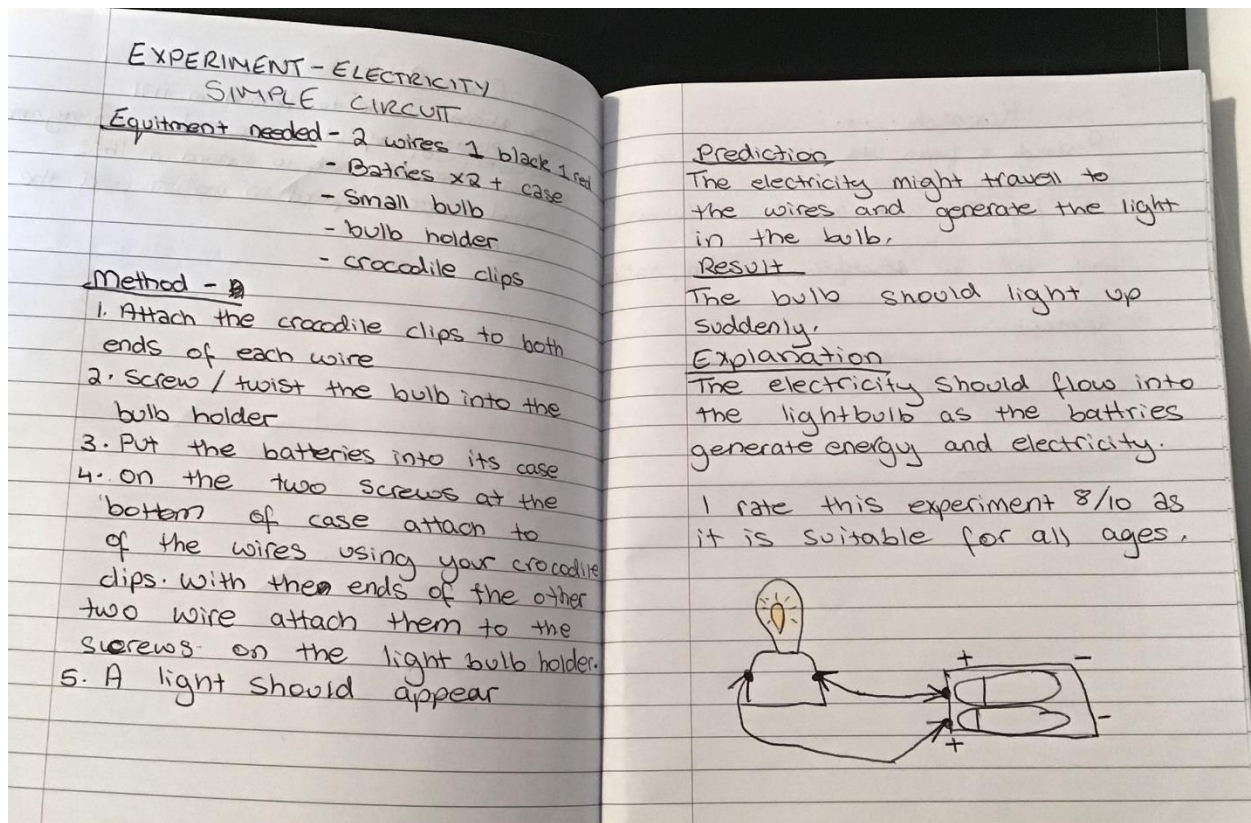 EXPERIMENT - ELECTRICITY
SIMPLE CIRCUIT
Equitment needed - 2 wires 1 black 1 red
- Batries x2 + case
- Small bulb
- bulb holder
- crocodile clips
Method -
1. Attach the crocodile clips to both
ends of each wire
2. Screw / twist the bulb into the
bulb holder
3. Put the batteries into its case
4. On the two screws at the
bottom of case attach to
of the wires using your crocodile
clips. With the ends of the other
two wire attach them to the
screws on the light bulb holder.
5. A light should appear
Prediction
The electricity might travell to
the wires and generate the light
in the bulb.
Result
The bulb should light up
suddenly.
Explanation
The electricity should flow into
the lightbulb as the battries
generate energy and electricity.
I rate this experiment 8/10 as
it is suitable for all ages.
+ -
-
+